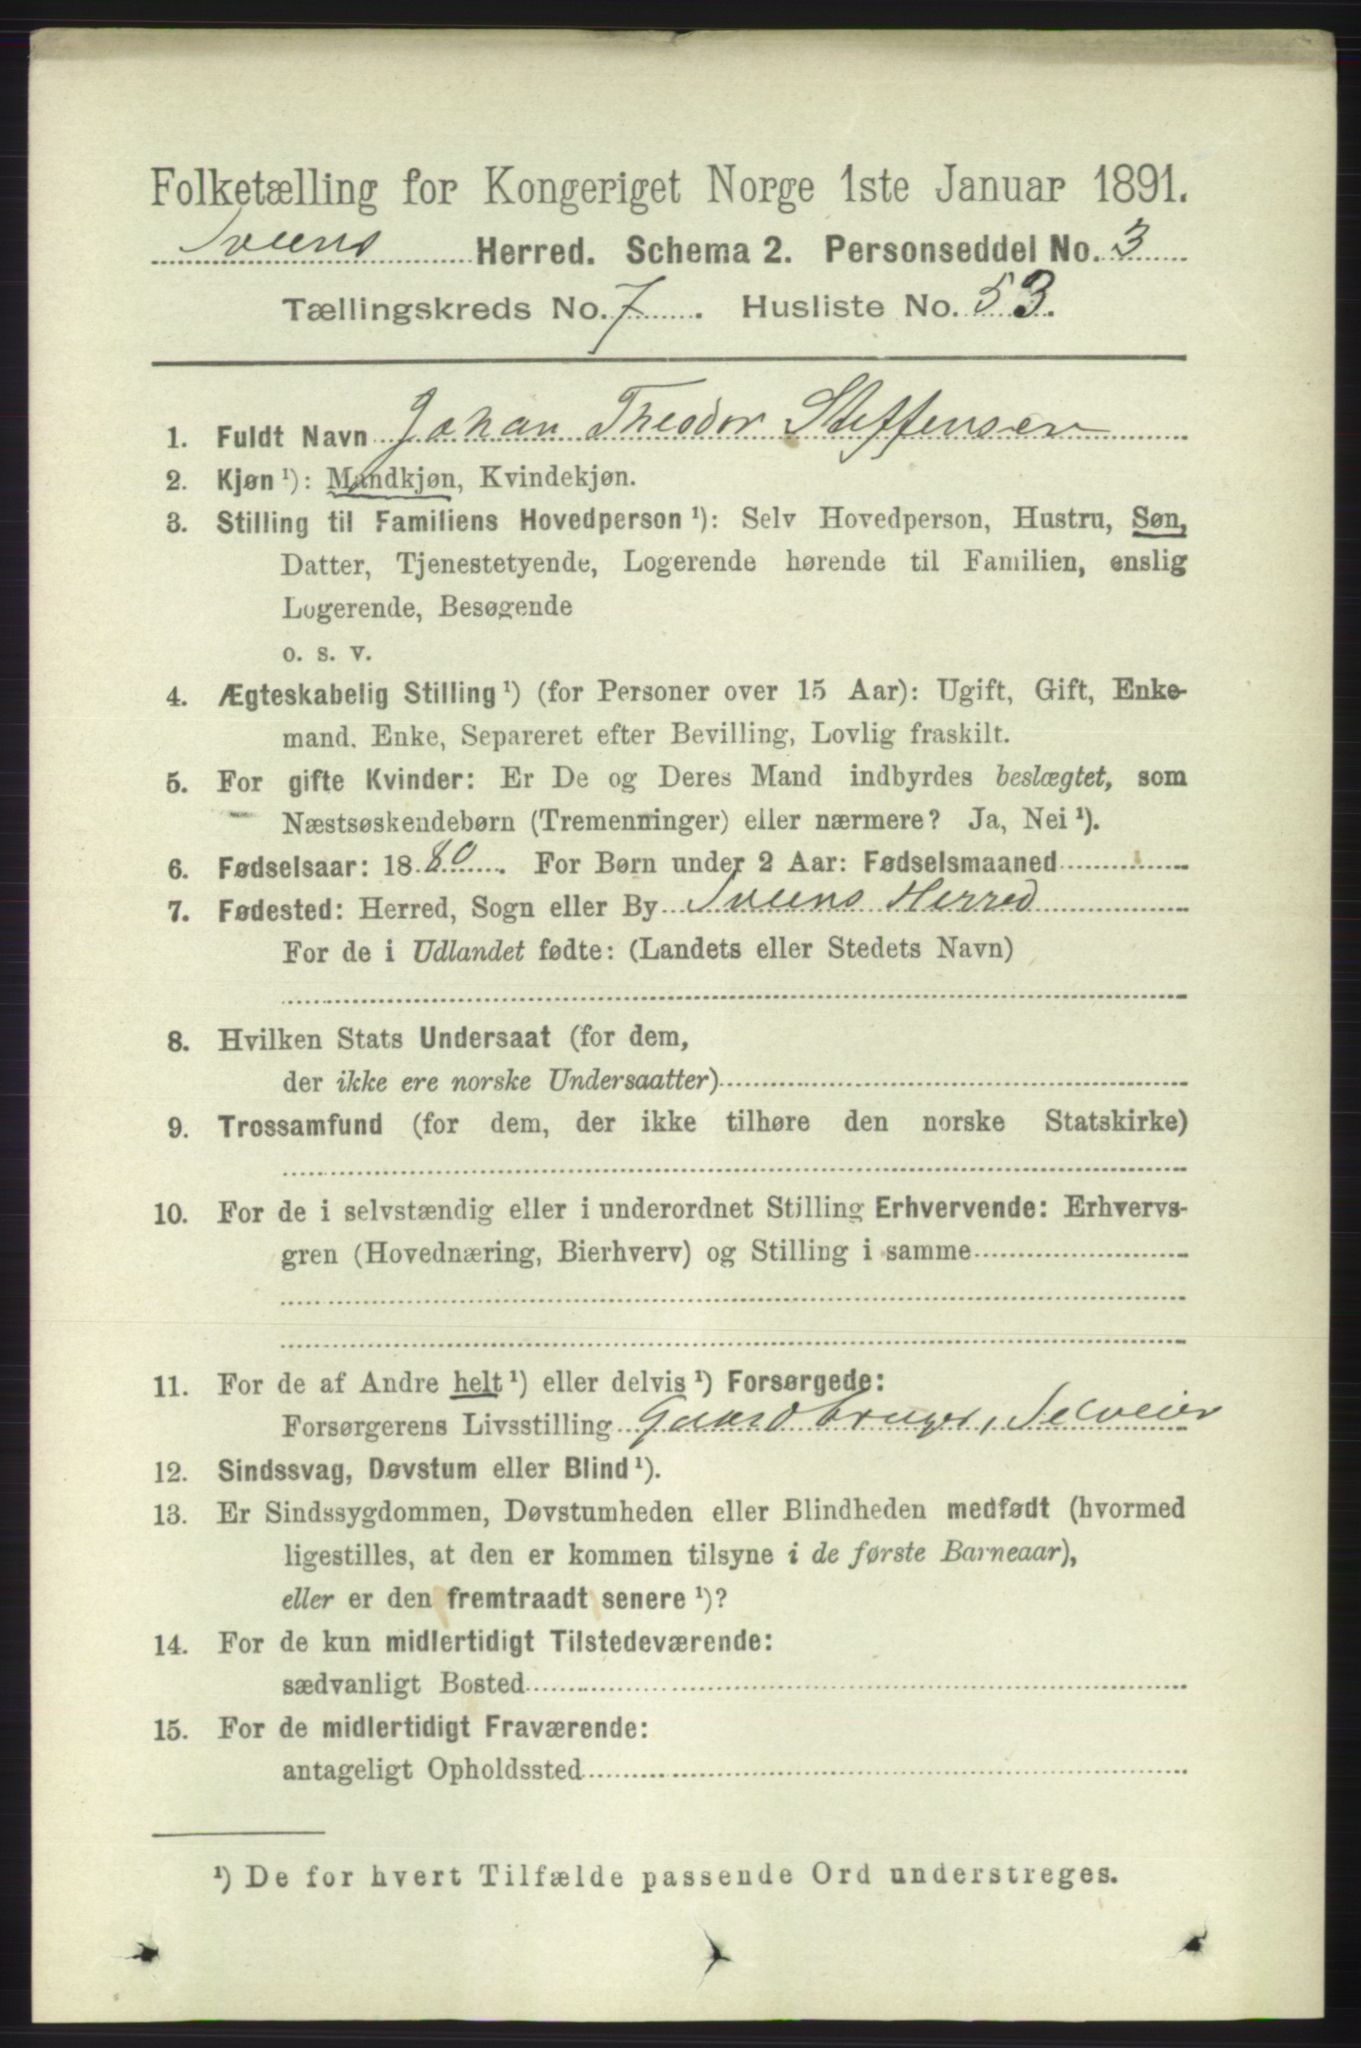 Folketælling for Kongeriget Norge 1ste Januar 1891.
Sveens Herred. Schema 2. Personseddel No. 3
Tællingskreds No. 7. Husliste No. 53.
1. Fuldt Navn Johan Theodor Steffensen
2. Kjøn ¹): Mandkjøn, Kvindekjøn.
3. Stilling til Familiens Hovedperson ¹): Selv Hovedperson, Hustru, Søn,
Datter, Tjenestetyende, Logerende hørende til Familien, enslig
Logerende, Besøgende
o. s. v.
4. Ægteskabelig Stilling ¹) (for Personer over 15 Aar): Ugift, Gift, Enke-
mand, Enke, Separeret efter Bevilling, Lovlig fraskilt.
5. For gifte Kvinder: Er De og Deres Mand indbyrdes beslægtet, som
Næstsøskendebørn (Tremenninger) eller nærmere? Ja, Nei ¹).
6. Fødselsaar: 1880. For Børn under 2 Aar: Fødselsmaaned
7. Fødested: Herred, Sogn eller By Sveens Herred
For de i Udlandet fødte: (Landets eller Stedets Navn)
8. Hvilken Stats Undersaat (for dem,
der ikke ere norske Undersaatter)
9. Trossamfund (for dem, der ikke tilhøre den norske Statskirke)
10. For de i selvstændig eller i underordnet Stilling Erhvervende: Erhvervs-
gren (Hovednæring, Bierhverv) og Stilling i samme
11. For de af Andre helt ¹) eller delvis ¹) Forsørgede:
Forsørgerens Livsstilling Gaardbruger, Selveier
12. Sindssvag, Døvstum eller Blind ¹).
13. Er Sindssygdommen, Døvstumheden eller Blindheden medfødt (hvormed
ligestilles, at den er kommen tilsyne i de første Barneaar),
eller er den fremtraadt senere ¹)?
14. For de kun midlertidigt Tilstedeværende:
sædvanligt Bosted
15. For de midlertidigt Fraværende:
antageligt Opholdssted
¹) De for hvert Tilfælde passende Ord understreges.